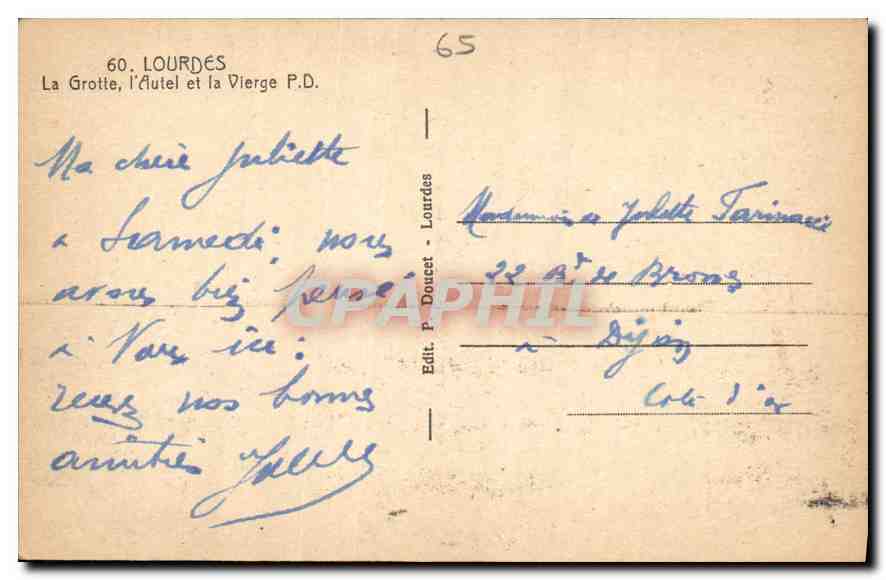 65
60. LOURDES
La Grotte, l'Autel et la Vierge P.D.
Ma chère Juliette
à Samedi, nous
avons bien pensé
à Vous ici :
recevez nos bonnes
amitiés
Edit. P. Doucet - Lourdes
CPAPHIL
Mademoiselle Juliette
22 Bd de Brosses
à Dijon
Côte d'or